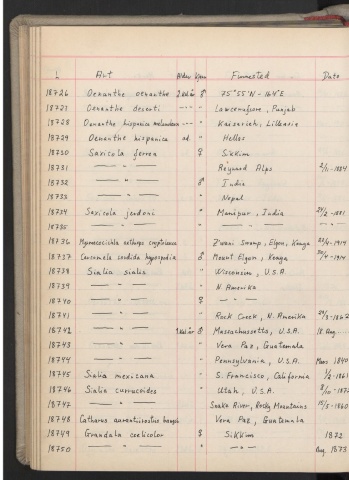 L Art Alder Kjønn Finnested Dato
18726 Oenanthe oenanthe 2 kal. år ♂ 75°55'N - 164°E
18727 Oenanthe deserti - - - " Lawrencepore, Punjab
18728 Oenanthe hispanica - - - " Kaisarieh, Lilleasia
18729 Oenanthe hispanica ad. " Hellas
18730 Saxicola ferrea ♀ Sikkim
18731 — " — " Alps 2/11-1884
18732 — " — ♂ India
18733 — " — " Nepal
18734 Saxicola jerdoni " Manipur, India 24/2-1881
18735 — " — " — " — — " —
18736 Zwani Swamp, Elgon, Kenya 1914
18737 Cercomela sordida hypospodia ♂ Mount Elgon, Kenya 1914
18738 Sialia sialis " Wisconsin, U.S.A.
18739 — " — " N. Amerika
18740 — " — ♀ — " —
18741 — " — " Rock Creek, N. Amerika 1862
18742 — " — 1 kal. år ♂ Massachusetts, U.S.A. 18 Aug.
18743 — " — " Vera Paz, Guatemala
18744 — " — " Pennsylvania, U.S.A. Mars 1840
18745 Sialia mexicana " S. Francisco, California 1/2-1861
18746 Sialia currucoides " Utah, U.S.A.
18747 — " — " Snake River, Rocky Mountains 15/5-1860
18748 Catharus aurantiirostris bangsi Vera Paz, Guatemala
18749 Grandala coelicolor ♀ Sikkim 1872
18750 — " — — " — Aug. 1873